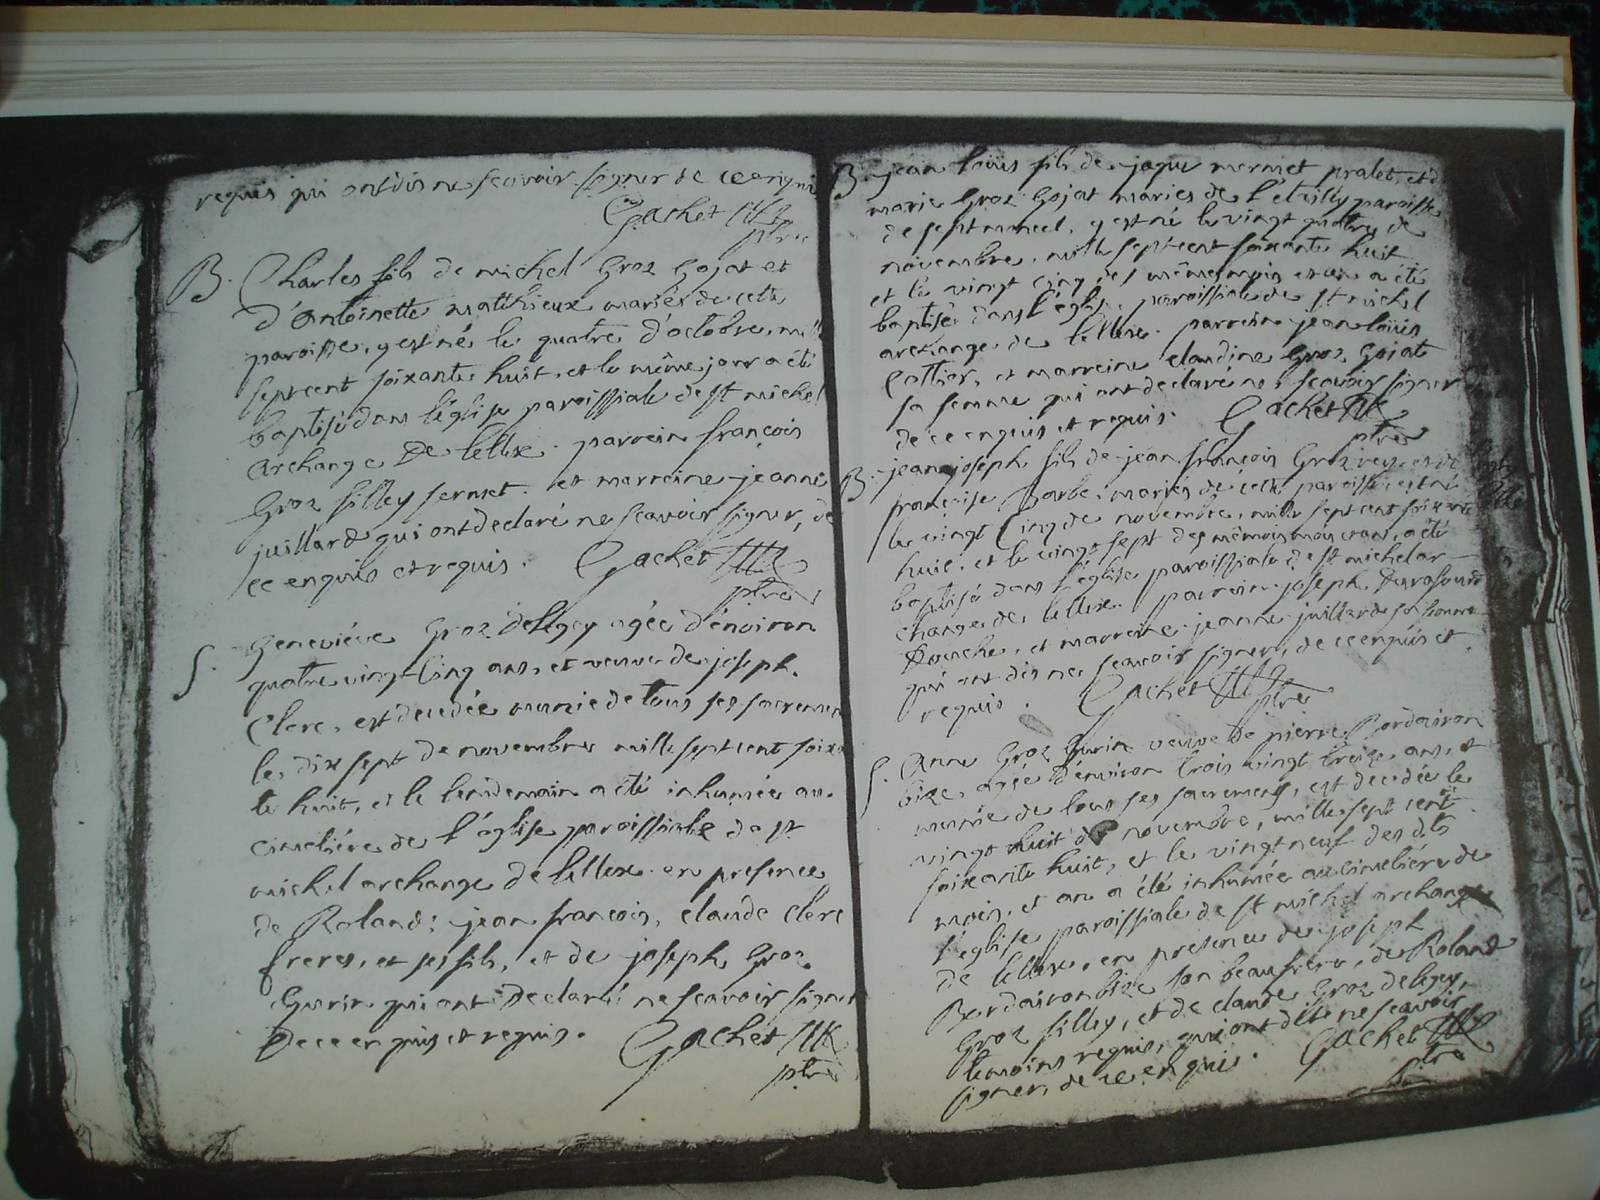 requis qui ont dis ne scavoir signer de ce enquis
Gachet
ptre
B. Charles fils de michel Groz Gojat et
d'Antoinette matthieux mariés de cette
paroisse, y est né le quatre d'octobre, mille
septcent soixante huit, et le même jour a été
baptisé dans l'église paroissiale de st michel
archange De lellex. parrein françois
Groz filley fernet. et marreine jeanne
juillard qui ont declaré ne scavoir signer, de
ce enquis et requis. Gachet
ptre
S. Geneviéve Groz delegey agée d'environ
quatre vingt Cinq ans, et veuve de joseph.
Clerc, est decedée munie de tous ses sacremen
le dix sept de novembre mille septcent soixa
te huit, et le lendemain a été inhumée au
cimetiére de l'église paroissiale de st
michel archange de lellex. en presence
de Roland: jean francois, claude Clerc
freres, et ses fils, et de joseph Groz
Gurin qui ont Declaré ne scavoir signer
De ce enquis et requis. Gachet
ptre
B. jean loüis fils de jaque mermet pralet, et de
marie Groz Gojat mariés de l'etrilly paroisse
de septmoncel, y est né le vingt quatre de
novembre, mille septcent soixante huit
et le vingt cinq des même mois et an a été
baptisé dans l'église paroissiale de st michel
archange de lellex. parrein jean loüis
Cottier, et marreine claudine Groz Gojat
sa femme qui ont declaré ne scavoir signer
de ce enquis et requis. Gachet
ptre
B. jean joseph fils de jean françois Groz et de
françoise Barbe, mariés de cette paroisse est né
le vingt Cinq de novembre, mille septcent soixante
huit, et le vingt sept des mêmes mois et an, a été
baptisé dans l'église paroissiale de st michel ar
change de lellex. parrein joseph
et marreine jeanne juillard sa femme
qui ont dis ne scavoir signer, de ce enquis et
requis. Gachet
ptre
S. Anne Groz Gurin veuve de pierre Bordairon
bize, agée d'environ trois vingt treize ans, et
munie de tous ses sacremens, est decedée le
vingt huit de novembre, mille sept cent
soixante huit, et le vingt neuf des dits
mois, et an a été inhumée au cimetiére de
l'église paroissiale de st michel archange
de lellex, en presence de joseph
Bordairon bize son beaufrere, de Roland
Groz filley, et de claude Groz delegey,
temoins requis, qui ont dit ne scavoir
signer, de ce enquis. Gachet
ptre